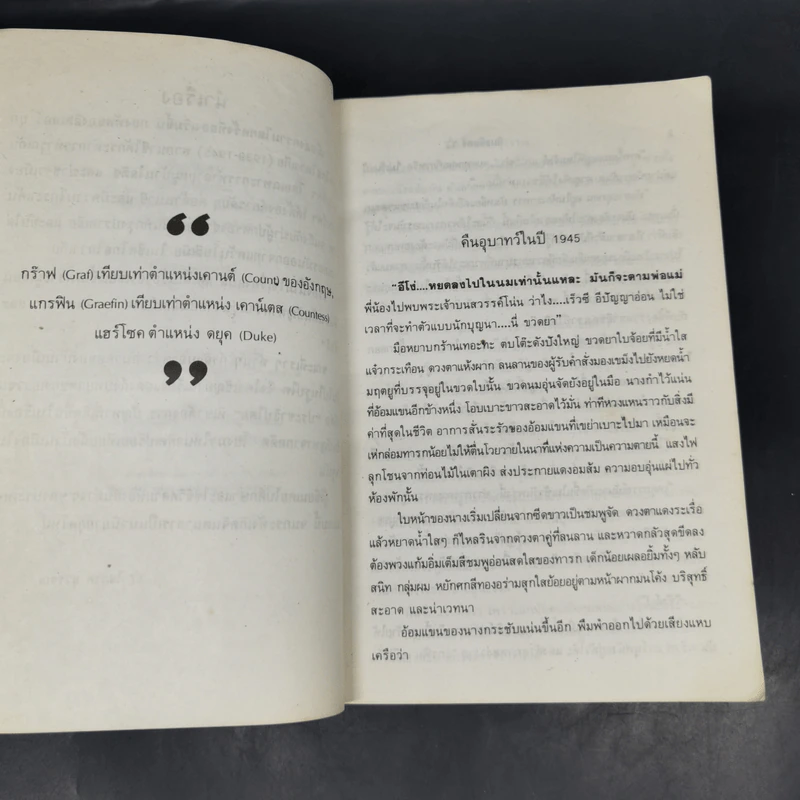 ❝
กร๊าฟ (Graf) เทียบเท่าตำแหน่งเคานต์ (Count) ของอังกฤษ,
แกรฟิน (Graefin) เทียบเท่าตำแหน่ง เคาน์เตส (Countess)
แฮร์โซค ตำแหน่ง ดยุค (Duke)
❞
คืนอุบาทว์ในปี 1945
"อีโง่....หยดลงไปในนมเท่านั้นแหละ มันก็จะตามพ่อแม่
พี่น้องไปพบพระเจ้าบนสวรรค์โน่น ว่าไง....เร็วซี อีปัญญาอ่อน ไม่ใช่
เวลาที่จะทำตัวแบบนักบุญนา....นี่ ขวดยา"
มือหยาบกร้านเทอะทะ ตบโต๊ะดังปังใหญ่ ขวดยาใบจ้อยที่มีน้ำใส
แจ๋วกระเทือน ดวงตาแห้งผาก ลนลานของผู้รับคำสั่งมองเขม็งไปยังหยดน้ำ
มฤตยูที่บรรจุอยู่ในขวดใบนั้น ขวดนมอุ่นจัดยังอยู่ในมือ นางกำไว้แน่น
ที่อ้อมแขนอีกข้างหนึ่ง โอบเบาะขาวสะอาดไว้มั่น ท่าทีหวงแหนราวกับสิ่งมี
ค่าที่สุดในชีวิต อาการสั่นระรัวของอ้อมแขนที่เขย่าเบาะไปมา เหมือนจะ
เห่กล่อมทารกน้อยไม่ให้ตื่นโวยวายในนาทีแห่งความเป็นความตายนี้ แสงไฟ
ลุกโชนจากท่อนไม้ในเตาผิง ส่งประกายแดงอมส้ม ความอบอุ่นแผ่ไปทั่ว
ห้องพักนั้น
ใบหน้าของนางเริ่มเปลี่ยนจากซีดขาวเป็นชมพูจัด ดวงตาแดงระเรื่อ
แล้วหยาดน้ำใสๆ ก็ไหลรินจากดวงตาคู่ที่ลนลาน และหวาดกลัวสุดขีดลง
ต้องพวงแก้มอิ่มเต็มสีชมพูอ่อนสดใสของทารก เด็กน้อยเผลอยิ้มทั้งๆ หลับ
สนิท กลุ่มผม หยักศกสีทองอร่ามสุกใสย้อยอยู่ตามหน้าผากมนโค้ง บริสุทธิ์
สะอาด และน่าเวทนา
อ้อมแขนของนางกระชับแน่นขึ้นอีก พึมพำออกไปด้วยเสียงแหบ
เครือว่า